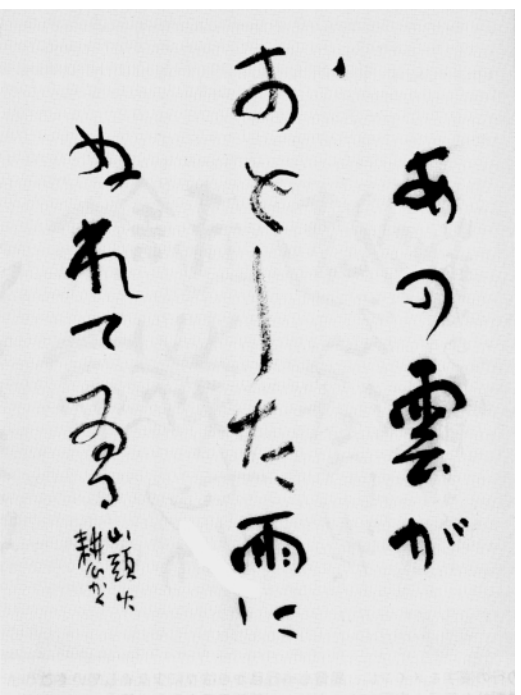 あの雲が
おとした雨に
ぬれてゐる
山頭火
耕畝かく